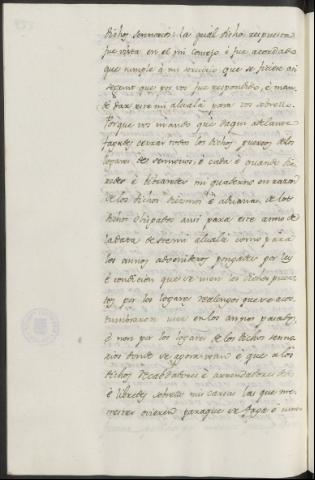 dichos sennorios: la qual dicha respuesta
fue vista en el mi consejo è fue acordado
que cumple à mi servicio que se ficiese an
segunt que por vos fue respondido, è man
de dar este mi alvalà para vos sobrello.
Porque vos mando que daqui adelante
fagades cerrar todos los dichos puertos de los
logares de sennorios è cada è quando
è libraredes mi quaderno en razon
de los dichos diezmos è aduanas de los
dichos Obispados ansi para este anno de
la data deste mi alvalà como para
los annos advenideros, pongades por ley
è condicion que se usen los dichos puer
tos por los logares realengos que se acos
tumbraron usar en los annos pasados,
è non por los logares de los dichos senno
rios donde se agora usan è que à los
dichos Recabdadores è arrendadores dedes
è libredes sobrello mis cartas las que me
nester ovieren para que se faga è